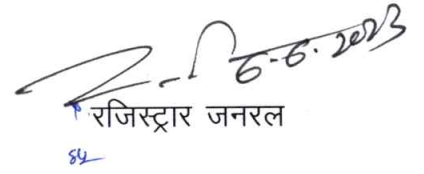 6.6.2023
रजिस्ट्रार जनरल